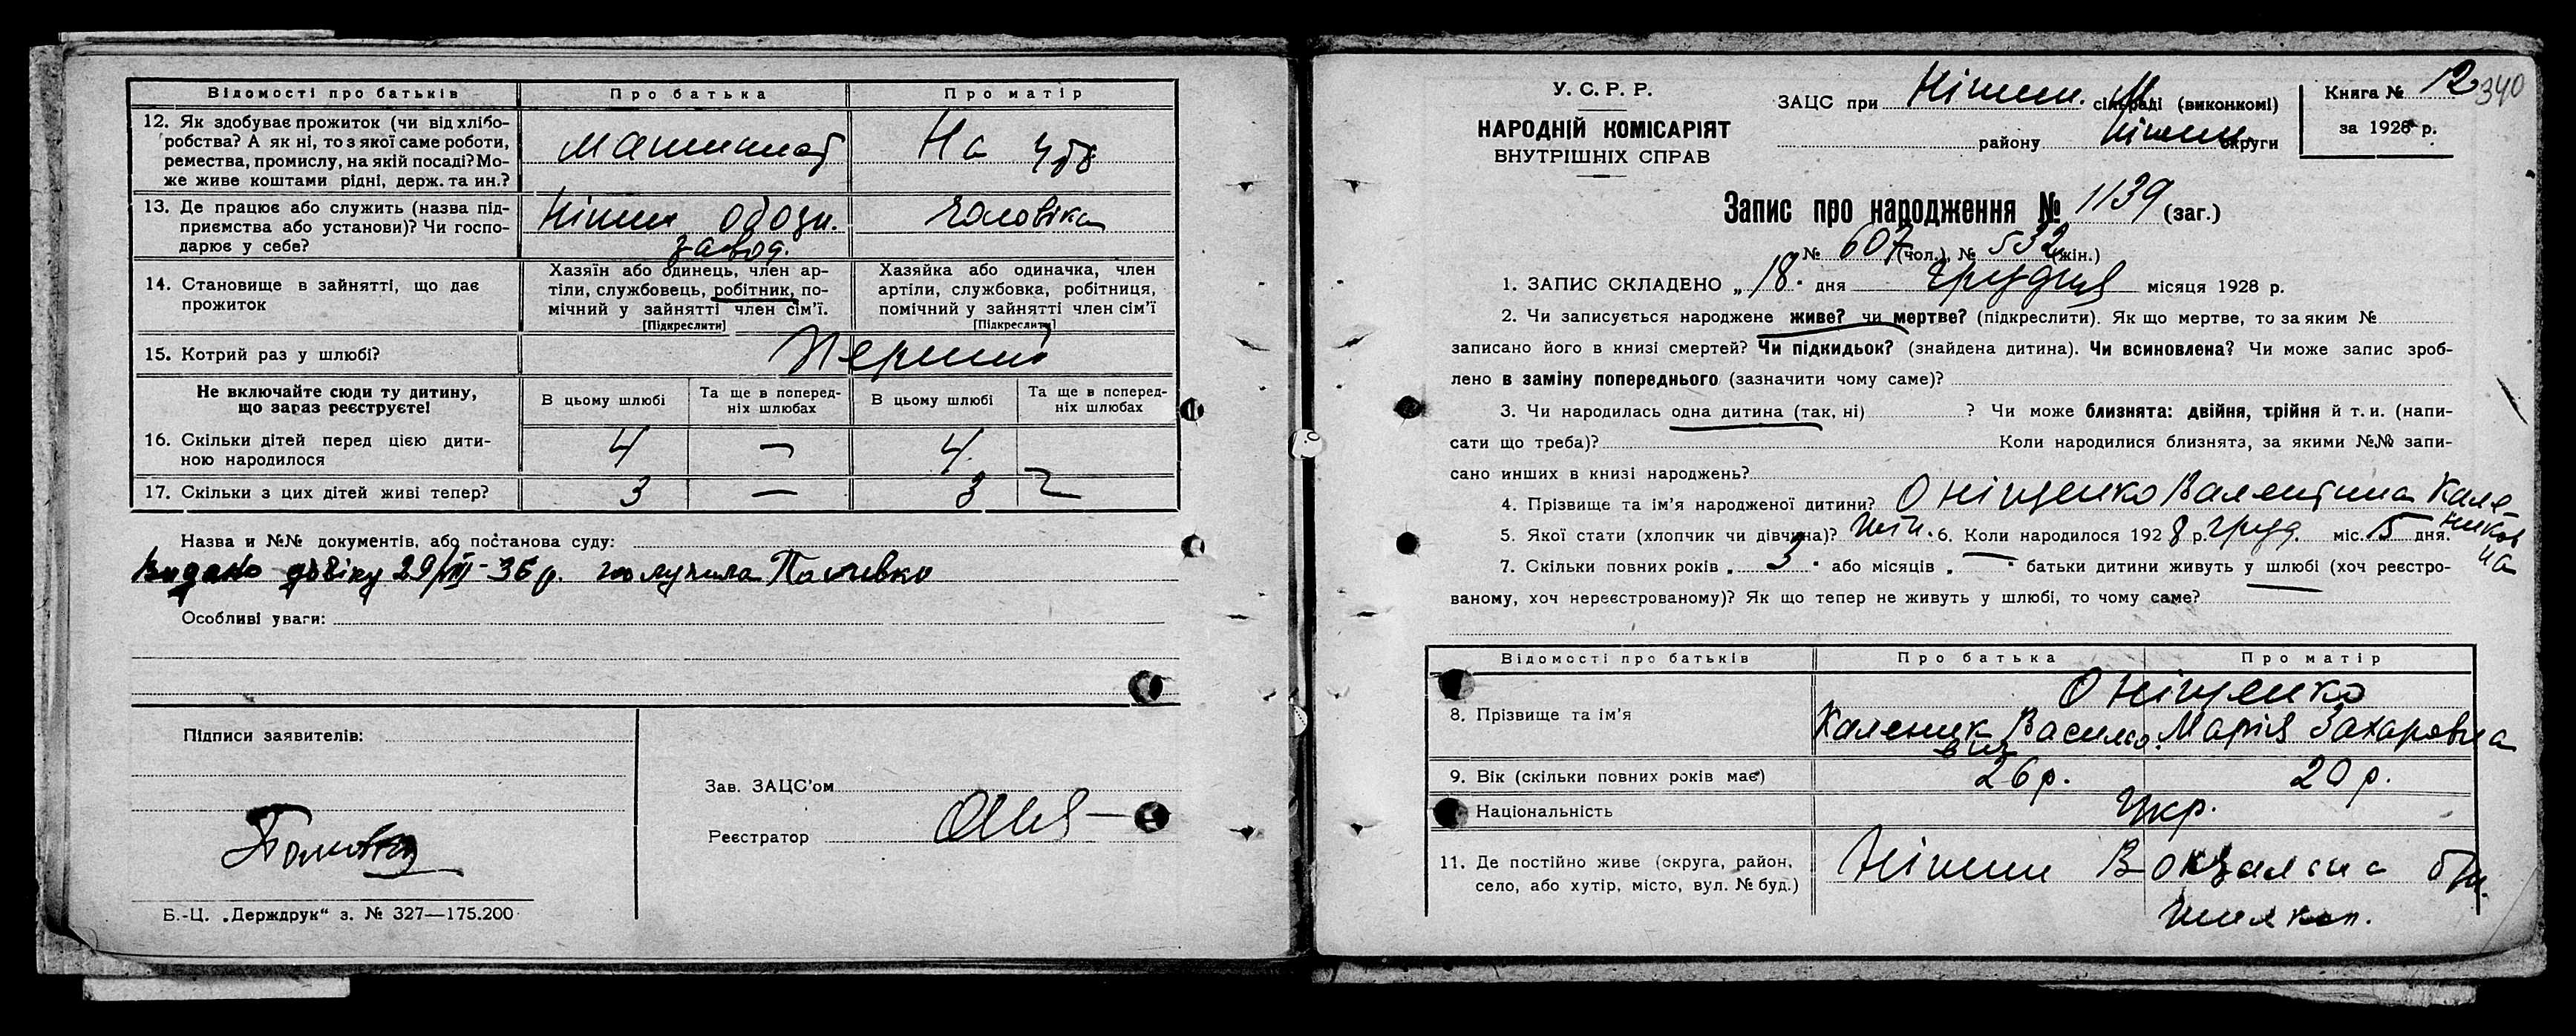 Відомості про батьків | Про батька | Про матір
12. Як здобуває прожиток (чи від хлібо-
робства? А як ні, то з якої саме роботи,
ремества, промислу, на якій посаді? Мо-
же живе коштами рідні, держ. та ин.?
машинист | На утр
13. Де працює або служить (назва під-
приємства або установи)? Чи госпо-
дарює у себе?
Ніжин обозн. | чоловіка
завод.
14. Становище в зайнятті, що дає
прожиток
Хазяїн або одинець, член ар-
тіли, службовець, робітник, по-
мічний у зайнятті член сім'ї.
[Підкреслити]
Хазяйка або одиначка, член
артіли, службовка, робітниця,
помічний у зайнятті член сім'ї
[Підкреслити]
15. Котрий раз у шлюбі?
Перший
Не включайте сюди ту дитину,
що зараз реєструєте!
В цьому шлюбі | Та ще в поперед-
ніх шлюбах | В цьому шлюбі | Та ще в поперед-
ніх шлюбах
16. Скільки дітей перед цією дити-
ною народилося
4 | — | 4
17. Скільки з цих дітей живі тепер?
3 | — | 3
Назва и №№ документів, або постанова суду:
Видано довіку 29/VIII-35р. получила
Особливі уваги:
Підписи заявителів:
Зав. ЗАЦС'ом
Реєстратор
Б.-Ц. „Держдрук“ з. № 327—175.200
У. С. Р. Р.
НАРОДНІЙ КОМІСАРІЯТ
ВНУТРІШНІХ СПРАВ
ЗАЦС при Ніжин. сільраді (виконкомі)
району Ніжин. округи
Книга № 12 340
за 1928 р.
Запис про народження № 1139 (заг.)
№ 607 (чол.), № 532 (жін.)
1. ЗАПИС СКЛАДЕНО „ 18 “ дня Грудня місяця 1928 р.
2. Чи записується народжене живе? чи мертве? (підкреслити). Як що мертве, то за яким №
записано його в книзі смертей? Чи підкидьок? (знайдена дитина). Чи всиновлена? Чи може запис зроб-
лено в заміну попереднього (зазначити чому саме)?
3. Чи народилась одна дитина (так, ні) ? Чи може близнята: двійня, трійня й т. и. (напи-
сати що треба)? Коли народилися близнята, за якими №№ запи-
сано инших в книзі народжень?
4. Прізвище та ім'я народженої дитини? Оніщенко Валентина Кале-
ников
на
5. Якої стати (хлопчик чи дівчина)? жін. 6. Коли народилося 1928 р. груд. міс. 15 дня.
7. Скільки повних років „ 3 “ або місяців „ — “ батьки дитини живуть у шлюбі (хоч реєстро-
ваному, хоч нереєстрованому)? Як що тепер не живуть у шлюбі, то чому саме?
Відомості про батьків | Про батька | Про матір
8. Прізвище та ім'я
Оніщенко
Каленик Василь | Марія Захаровна
вич
9. Вік (скільки повних років має) 26 р. | 20 р.
Національність Укр.
11. Де постійно живе (округа, район,
село, або хутір, місто, вул. № буд.)
Ніжин Вокзальна